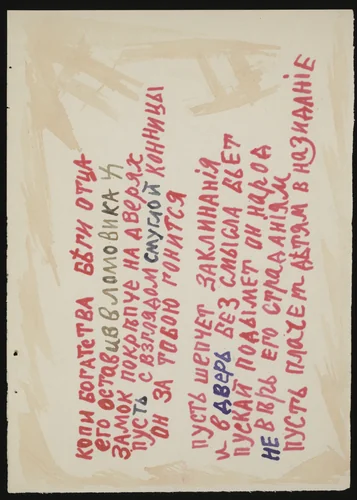 КОПИ БОГАТСТВА БѢГИ ОТЦА
ЕГО ОСТАВИВ ВЛОМОВИКА И
ЗАМОК ПОКРѢПЧЕ НА ДВЕРЯХ
ПУСТЬ С ВЗГЛЯДОМ СМУГЛОЙ КОННИЦЫ
ОН ЗА ТОБОЮ ГОНИТСЯ
ПУСТЬ ШЕПЧЕТ ЗАКЛИНАНІЯ
И В ДВЕРЬ БЕЗ СМЫСЛА БЬЕТ
ПУСКАЙ ПОДЫМЕТ ОН НАРОД
НЕ ВѢРЬ ЕГО СТРАДАНІЯМ
ПУСТЬ ПЛАЧЕТ ДѢТЯМ В НАЗИДАНІЕ